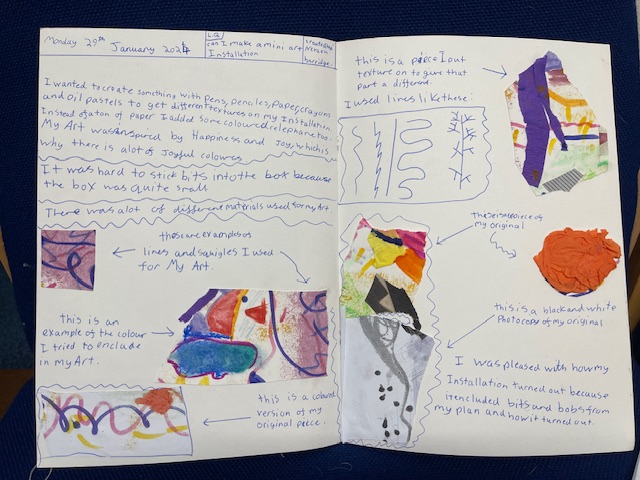 Monday 29th January 2024
L.Q
can I make a mini art
Installation
created by
burridge
I wanted to create something with pens, penciles, Paper, crayons
and oil pastels to get different textures on my Installation.
Instead of a ton of paper I added some coloured
My Art was inspired by Happiness and Joy, which is
why there is alot of Joyful colowres
It was hard to stick bits into the box because
the box was quite small
There was alot of different materials used for my Art.
these are examples of
lines and sqigles I used
for My Art.
this is an
example of the colour
I tried to enclude
in my Art.
this is a coloured
version of my
original peice.
this is a peice I put
texture on to give that
part a different
I used lines like these:
of my
original
this is a black and white
Photocopy of my original
I was pleased with how my
Installation turned out because
it encluded bits and bobs from
my plan and how it turned out.